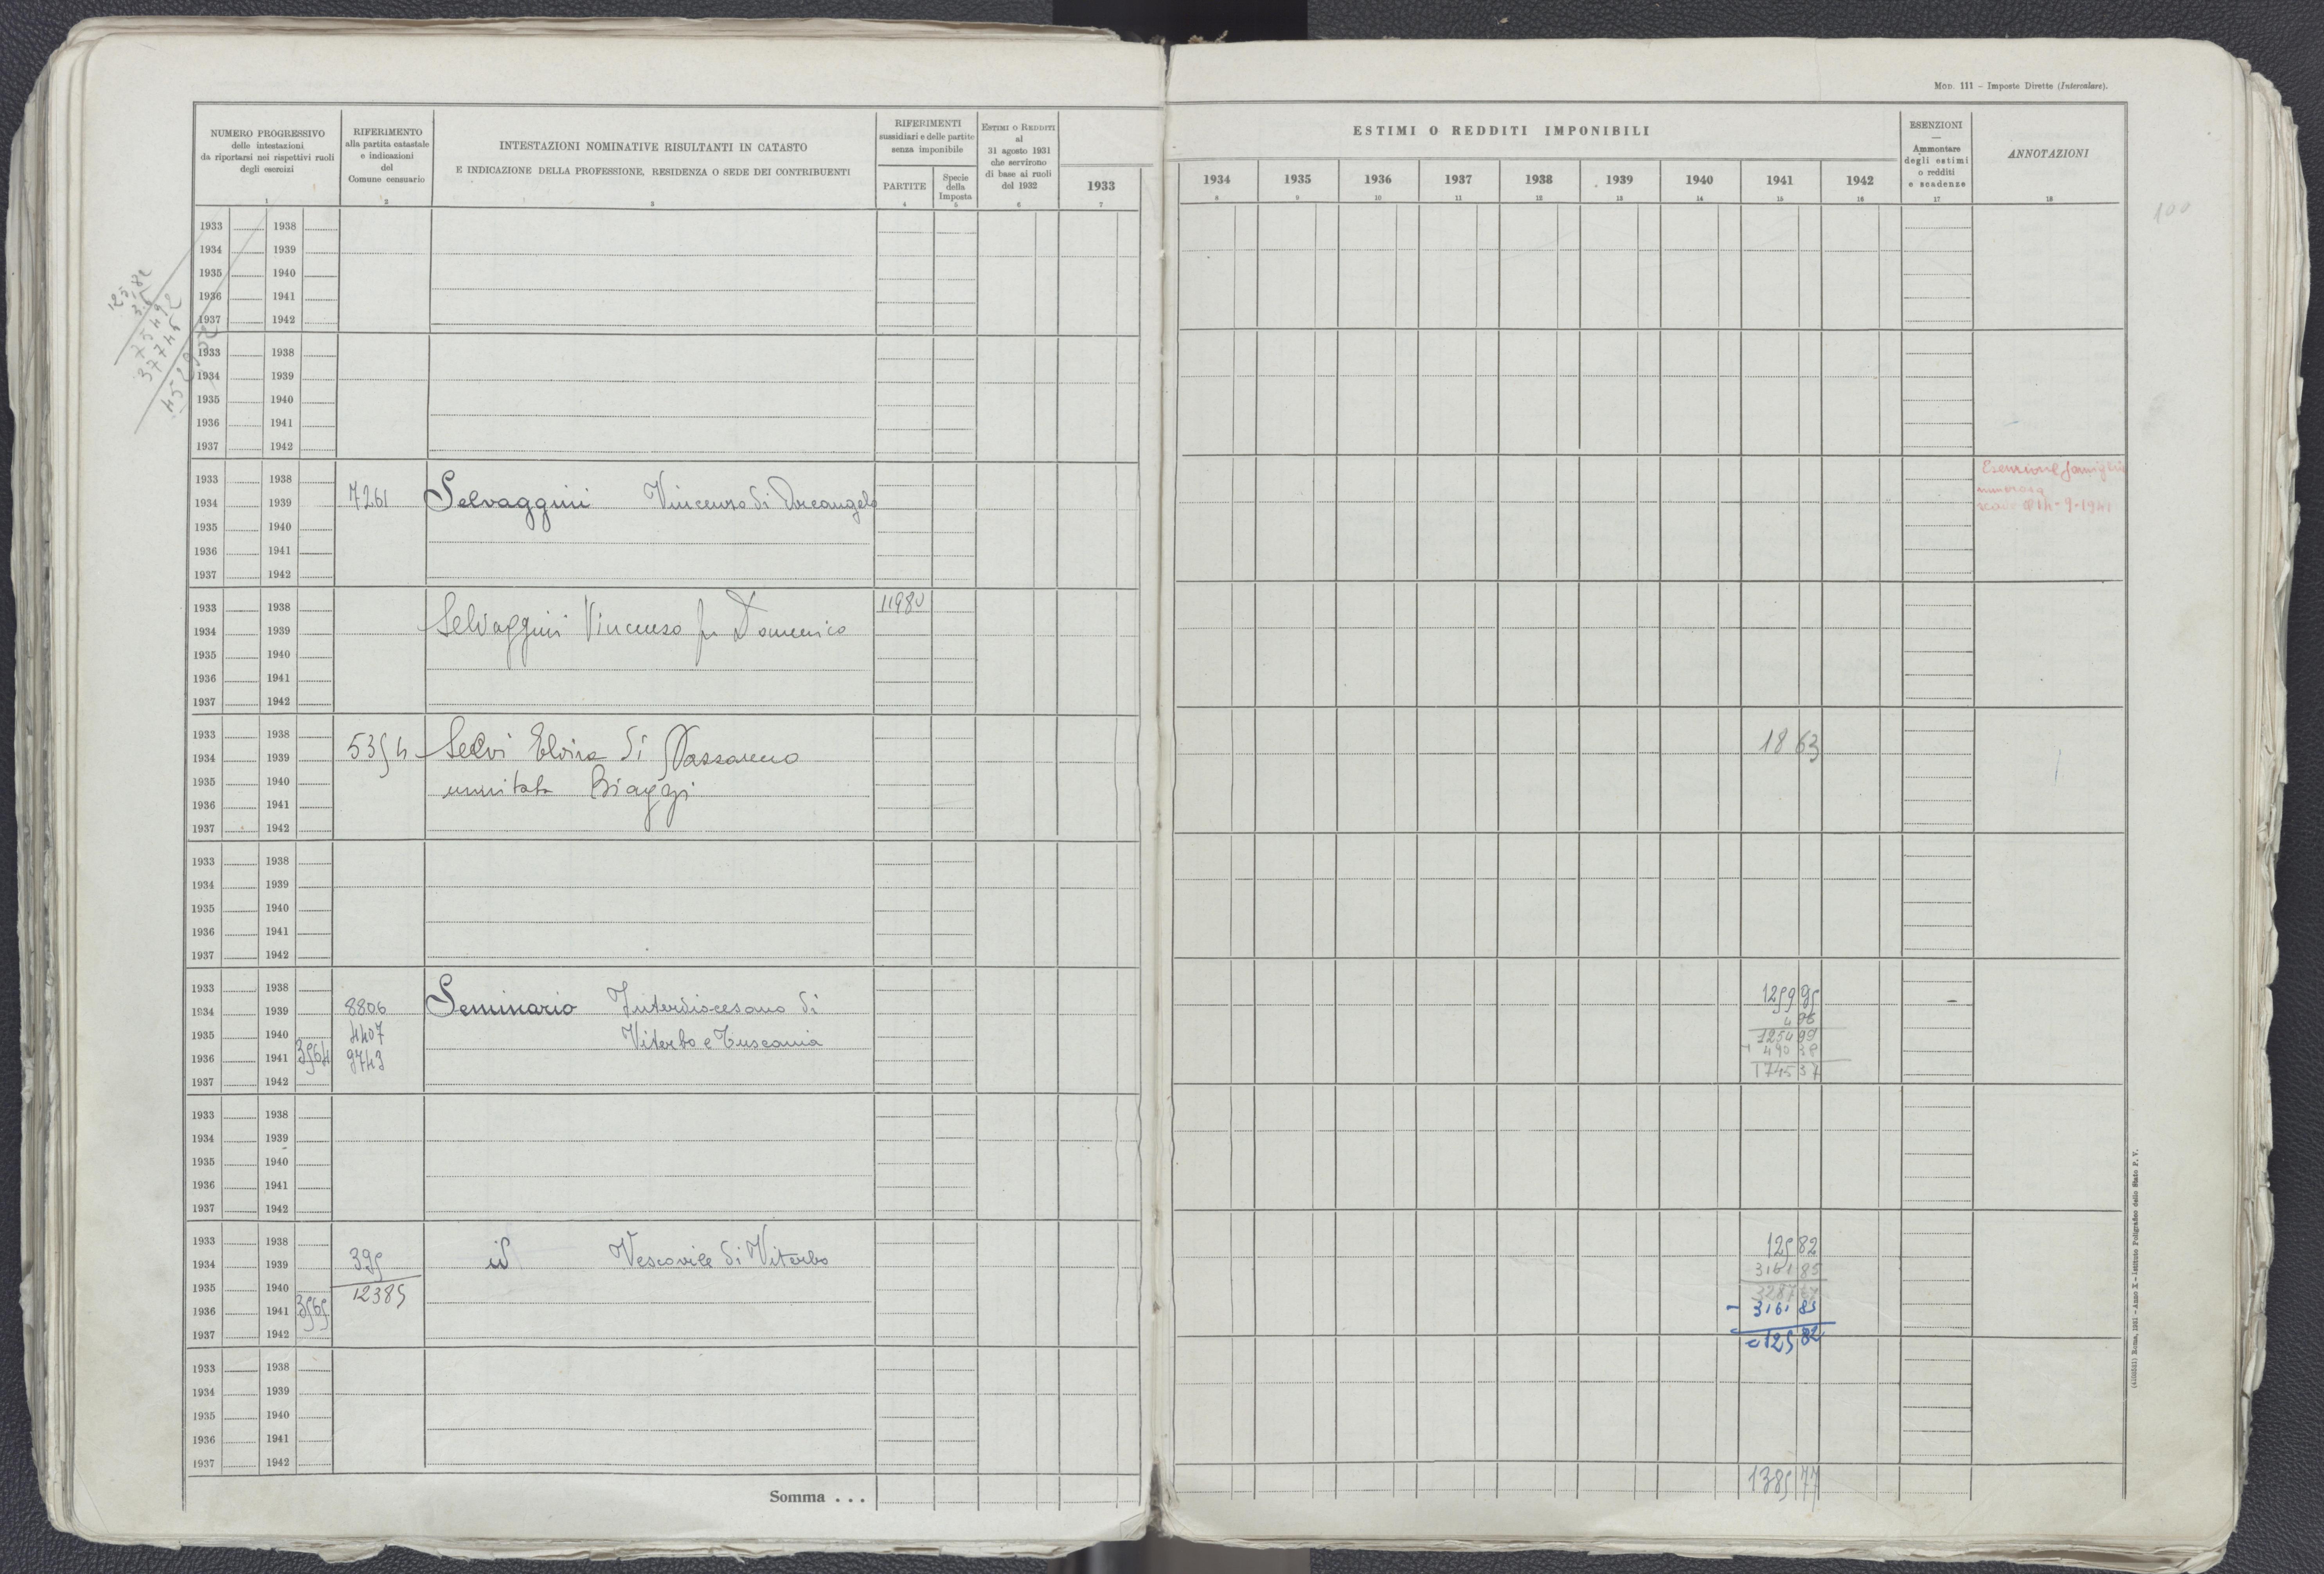 MOD. 111 - Imposte Dirette (Intercalare).
NUMERO PROGRESSIVO
delle intestazioni
da riportarsi nei rispettivi ruoli
degli esercizi
1
RIFERIMENTO
alla partita catastale
e indicazioni
del
Comune censuario
2
INTESTAZIONI NOMINATIVE RISULTANTI IN CATASTO
E INDICAZIONE DELLA PROFESSIONE, RESIDENZA O SEDE DEI CONTRIBUENTI
3
RIFERIMENTI
sussidiari e delle partite
senza imponibile
PARTITE
4
Specie
della
Imposta
5
ESTIMI O REDDITI
al
31 agosto 1931
che servirono
di base ai ruoli
del 1932
6
1933
7
ESTIMI O REDDITI IMPONIBILI
1934 1935 1936 1937 1938 1939 1940 1941 1942
8 9 10 11 12 13 14 15 16
ESENZIONI
—
Ammontare
degli estimi
o redditi
e scadenze
17
ANNOTAZIONI
18
100
1933 1938
1934 1939
1935 1940
1936 1941
1937 1942
1933 1938
1934 1939
1935 1940
1936 1941
1937 1942
1933 1938
1934 1939 7261 Selvaggini Vincenzo di Arcangelo
1935 1940
1936 1941
1937 1942
Esenzione famiglia
numerosa
9-1941
1933 1938 11980
1934 1939 Selvaggini Vincenzo fu Domenico
1935 1940
1936 1941
1937 1942
1933 1938
1934 1939 5354 Selvi Elvira di Nazzareno 18 63
1935 1940 Biaggi
1936 1941
1937 1942
1933 1938
1934 1939
1935 1940
1936 1941
1937 1942
1933 1938 1259 95
1934 1939 8806 Seminario Interdiocesano di 4 96
1935 1940 4407 Viterbo e Tuscania 1254 99
1936 1941 3564 9743 490 38
1937 1942 1745 37
1933 1938
1934 1939
1935 1940
1936 1941
1937 1942
1933 1938 125 82
1934 1939 395 id Vescovile di Viterbo 3161 85
1935 1940 12385 3287 67
1936 1941 3565 - 3161 85
1937 1942 125 82
1933 1938
1934 1939
1935 1940
1936 1941
1937 1942
Somma . . . 1385 77
Roma, 1931 - Anno X - Istituto Poligrafico dello Stato P. V.